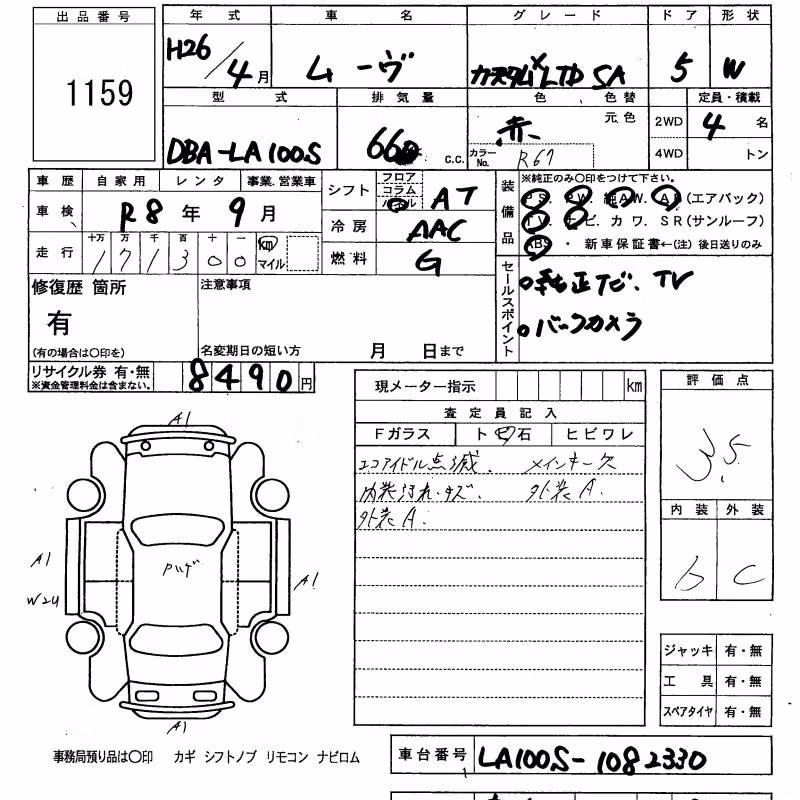 出品番号
1159
年式 車名 グレード ドア 形状
H26/4月 ムーヴ カスタムX LTD SA 5 W
型式 排気量 色 色替 定員・積載
DBA-LA100S 660 c.c. 赤 元色 2WD 4名
カラーNo. R67 4WD トン
車歴 自家用 レンタ 事業.営業車
車検 R8年9月
走行 十万 万 千 百 十 一 km マイル
171300
シフト フロア コラム AT
冷房 AAC
燃料 G
装備品
※純正のみ〇印をつけて下さい。
PS. PW. 純AW. AB(エアバック)
TV. ナビ. カワ. SR(サンルーフ)
ABS・新車保証書←(注)後日送りのみ
修復歴 箇所
有
(有の場合は〇印を)
注意事項
名変期日の短い方 月 日まで
セールスポイント
純正ナビ. TV
バックカメラ
リサイクル券 有・無
※資金管理料金は含まない。
8490円
現メーター指示 km
査定員記入
Fガラス ト ビ 石 ヒビワレ
エコアイドル点滅. メインキー欠
内装汚れ・キズ. 外装A.
外装A.
評価点
3.5
内装 外装
b C
A1
A1
W2U
A1
A1
ジャッキ 有・無
工具 有・無
スペアタイヤ 有・無
事務局預り品は〇印 カギ シフトノブ リモコン ナビロム
車台番号 LA100S-1082330